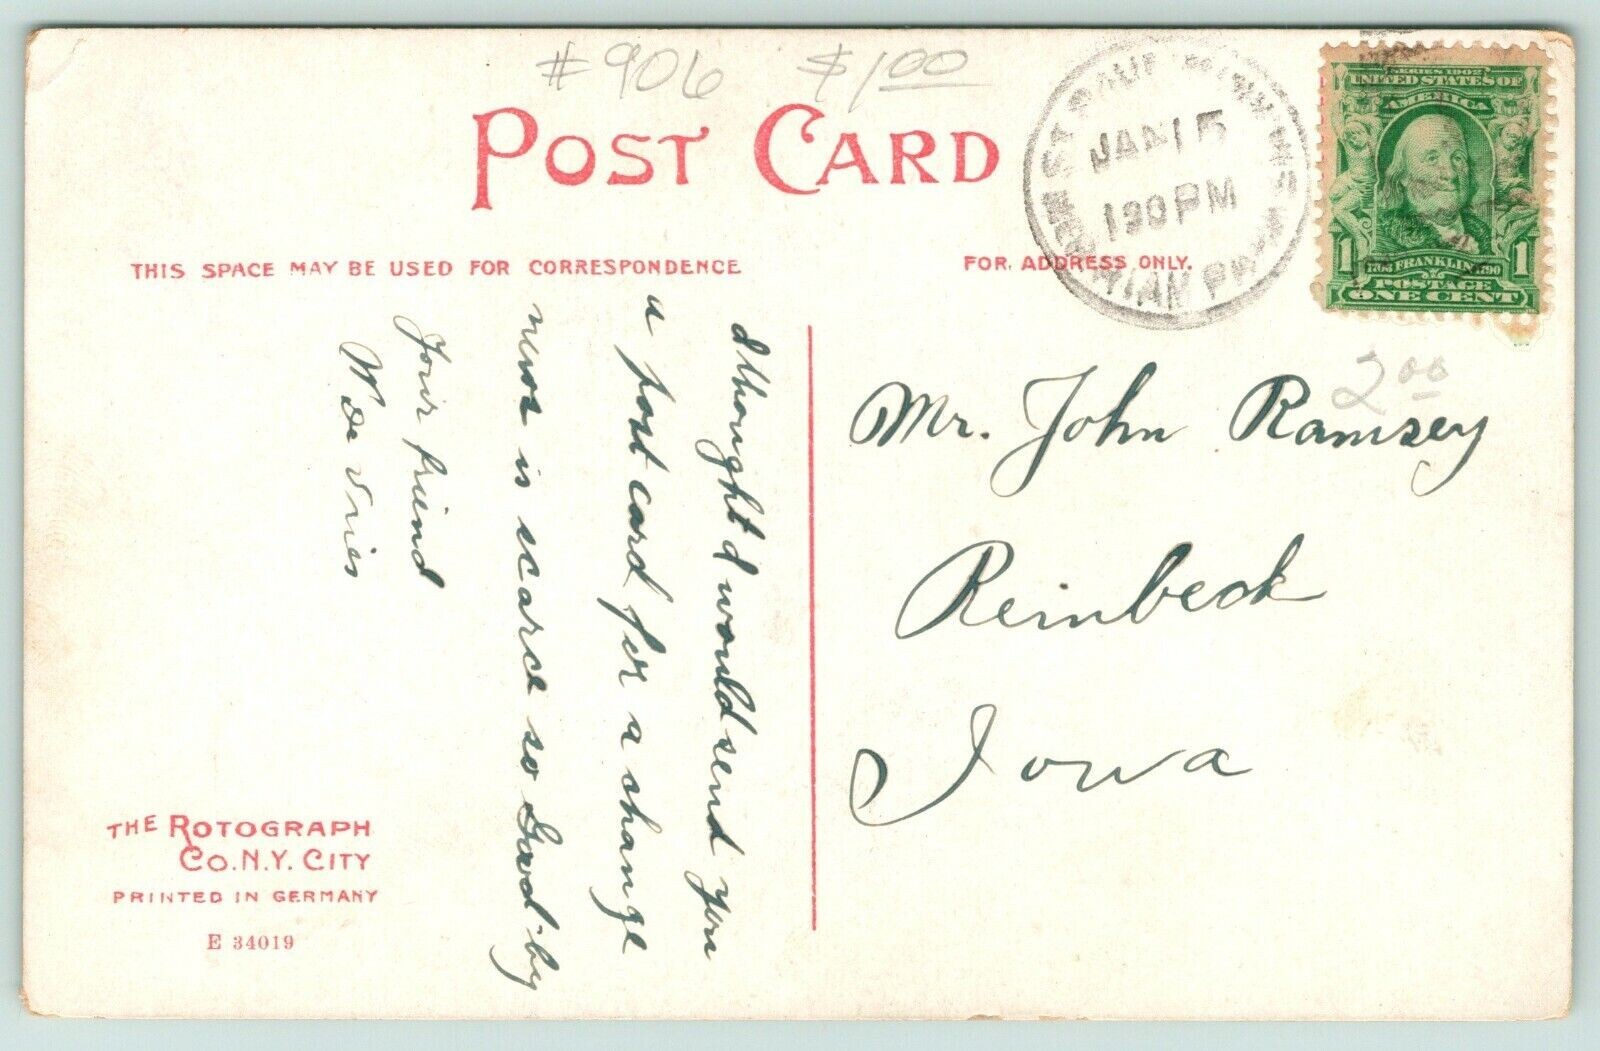 #906 $1.00
POST CARD
JAN 15
1 30 PM
SERIES 1902
UNITED STATES OF
AMERICA
1 FRANKLIN 1790 1
POSTAGE
ONE CENT
THIS SPACE MAY BE USED FOR CORRESPONDENCE
FOR ADDRESS ONLY.
I thought I would send you
a post card for a change
news is scarce so Good-by
Your friend
W de Vries
2.00
Mr. John Ramsey
Reinbeck
Iowa
THE ROTOGRAPH
CO. N.Y. CITY
PRINTED IN GERMANY
E 34019